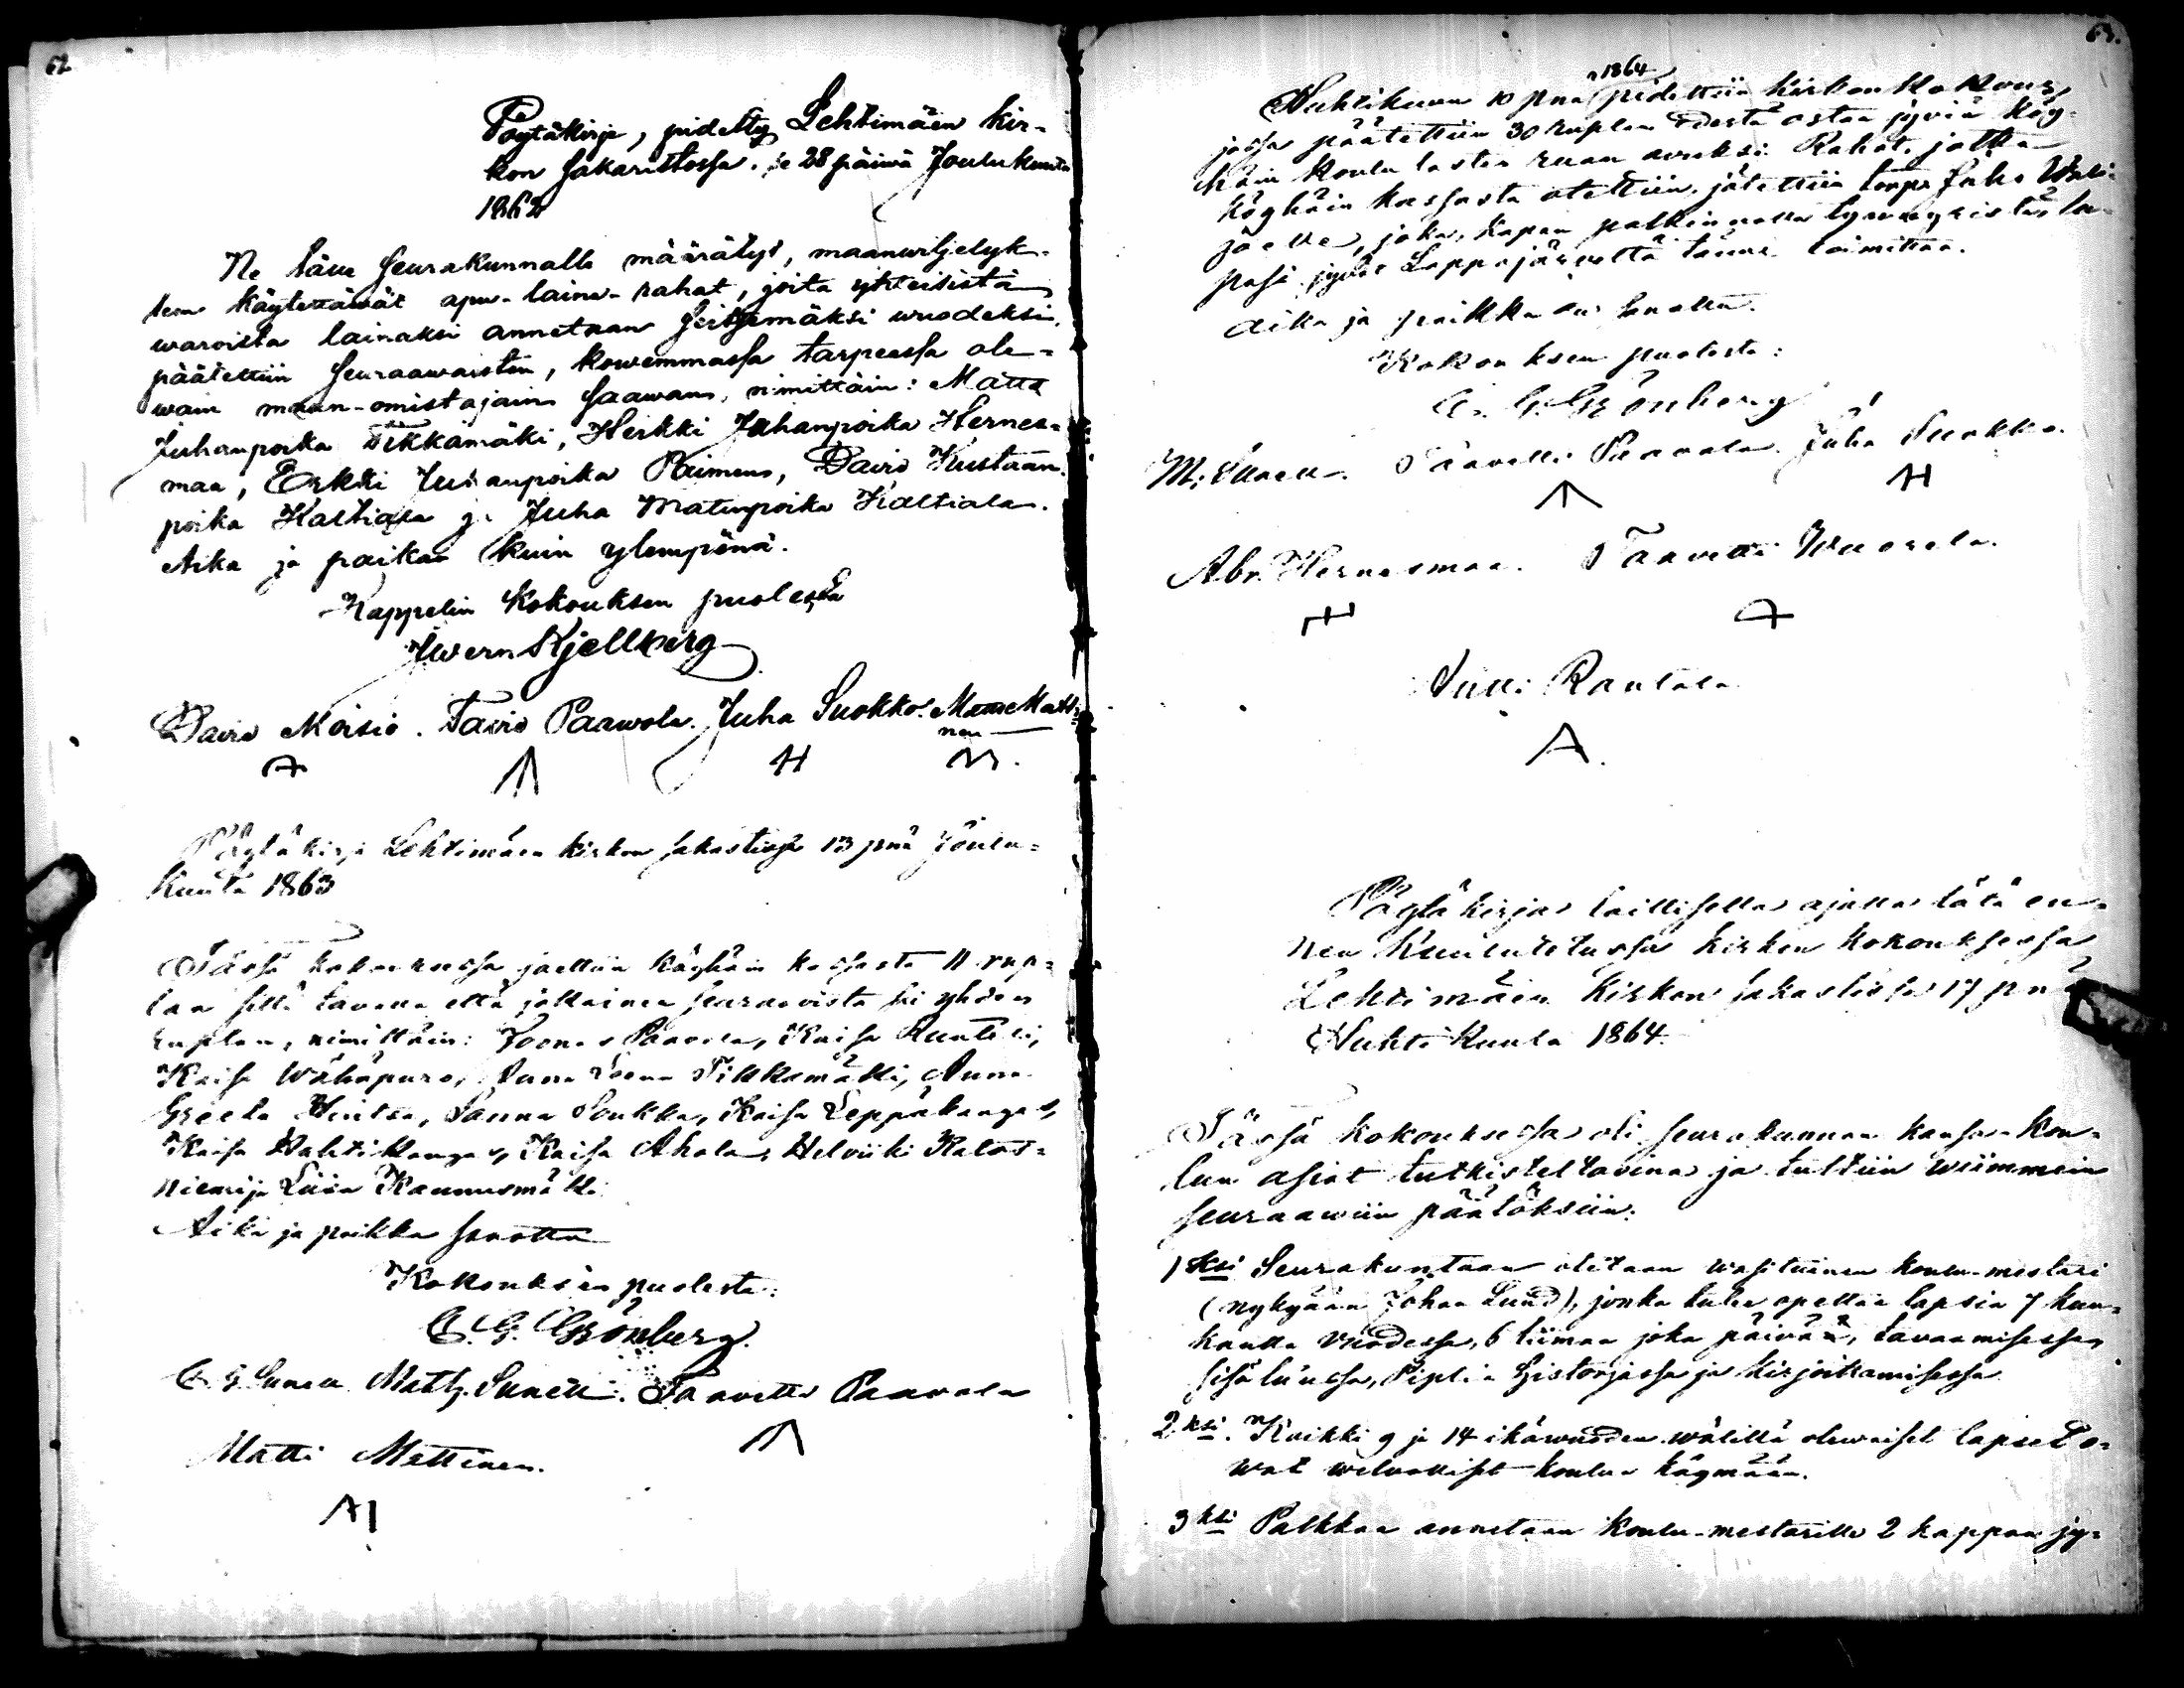 62
Pöytäkirja, pidetty Lehtimäen kir-
kon sakaristossa, se 28 päiwä Joulukuuta
1862
Ne tälle seurakunnalle määrätyt, maanwiljelyk-
seen käytettäwät apu-laina-rahat, joita yhteisistä
waroista lainaksi annetaan seitsemäksi wuodeksi,
päätettiin seuraawaisten, kowemmassa tarpeessa ole-
wain maan-omistajain saawan, nimittäin: Matts
Juhanpoika Tikkamäki, Herkki Juhanpoika Hernes-
maa, Erkki Juhanpoika Raimens, David Kustaan-
poika Kaltiala ja Juha Matinpoika Kaltiala.
Aika ja paikka kuin ylempänä.
Kappelin Kokouksen puolesta
Iwern Kjellberg
David Moisio. Tavid Paawola. Juha Suokko. Matts Matti-
nen
Pöytäkirja Lehtimäen kirkon sakastissa 13 pnä Joulu-
kuuta 1863
Tässä kokouksessa jaettiin köyhäin kassasta 11 rup-
laa sillä tavalla että jokainen seuraavista sai yhden
ruplan, nimittäin: Joonas Paavola, Kaisa Runtti,
Kaisa Wähäpuro, Anna Leena Tikkamäki, Anna
Greeta Hintsa, Sanna Soukka, Kaisa Leppäkangas,
Kaisa Hahtikangas, Kaisa Ahola, Helviiki Kalas-
niemi ja Liisa Kaunusmäki.
Aika ja paikka sanottu
Kokouksen puolesta:
C. G. Grönberg.
C. G. Sunell Matts Sunell. Taavetti Paavola
Matti Mattinen.
63.
1864
Huhtikuun 10 pnä pidettiin kirkon kokous,
jossa päätettiin 30 ruplan edestä ostaa jyviä köy-
häin koulu lasten ruan avuksi. Rahat, jotka
köyhäin kassasta otettiin, jätettiin Juho
joelle, joka, kapan palkinnolla
pasi jyvät Lappajärveltä tänne toimittaa.
Aika ja paikka on sanottu.
Kokouksen puolesta:
C. G. Grönberg
M. Sunell. Taavetti Paavola. Juha Suokko.
Abr. Hernesmaa. Taavetti Wuorela.
Antti Rantala
A.
Pöytäkirja laillisella ajalla tätä en-
nen kuulutetussa kirkon kokouksessa
Lehtimäen Kirkon sakastissa 17 pnä
Huhtikuuta 1864.
Tässä kokouksessa oli seurakunnan kansa-kou-
lun asiat tutkisteltavina ja tultiin wiimmein
seuraawiin päätöksiin:
1ksi Seurakuntaan otetaan wasituinen koulu-mestari
(nykyään Johan Lund), jonka tulee opettaa lapsia 7 kuu-
kautta vuodessa, 6 tiimaa joka päivä, tavaamisessa,
sisälusussa, Piplia historjassa ja kirjoittamisessa.
2ksi. Kaikki 9 ja 14 ikäwuoden wälillä olewaiset lapset o-
wat welwolliset koulua käymään.
3ksi Palkkaa annetaan koulu-mestarille 2 kappaa jy-